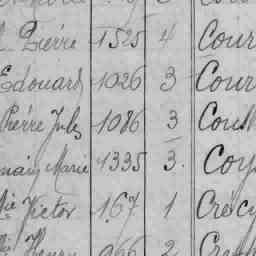 Pierre 1525 4 Cour
Edouard 1026 3 Cour
Pierre Jules 1086 3 Cous
Marie 1335 3. Coy
Victor 167 1 Crécy
Henry 966 2